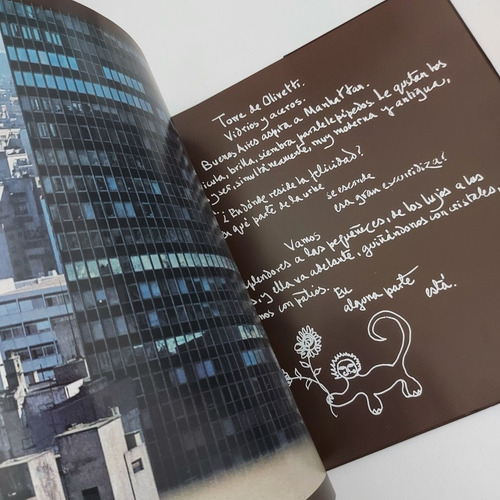 Torre de Olivetti.
Vidrios y aceros.
Buenos Aires aspira a Manhattan.
icula, brilla, siembra paralelepípedos. Le gustan los
y ser, simultáneamente, muy moderna y antigua,
? En dónde reside la felicidad?
qué parte de la urbe se esconde
esa gran escurridiza?
Vamos
plendores a las pequeñeces, de los lujos a los
, y ella va adelante, guiñándonos con cristales
nos con patios. En
alguna parte está.